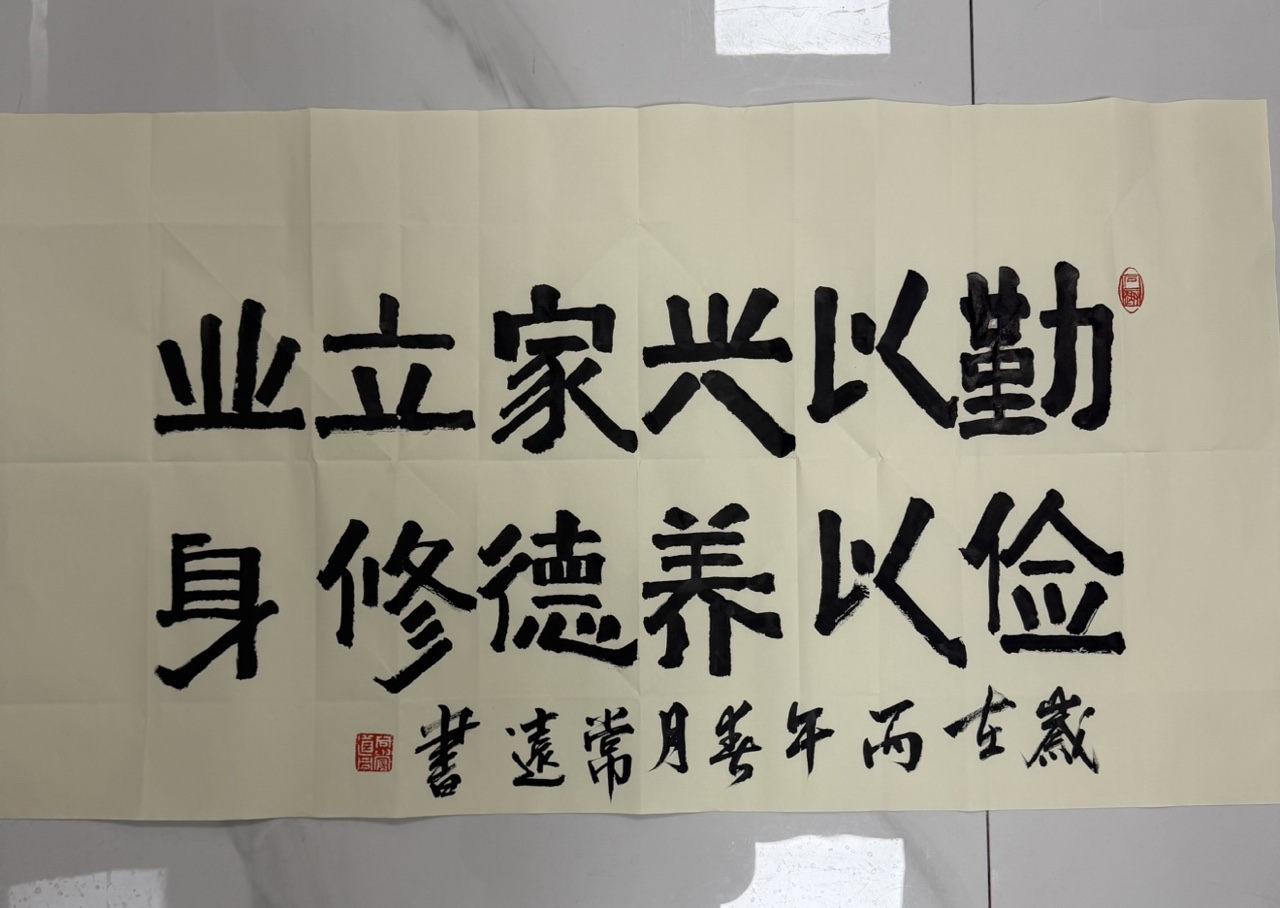 勤以兴家立业
俭以养德修身
歲在丙午春月常遠書